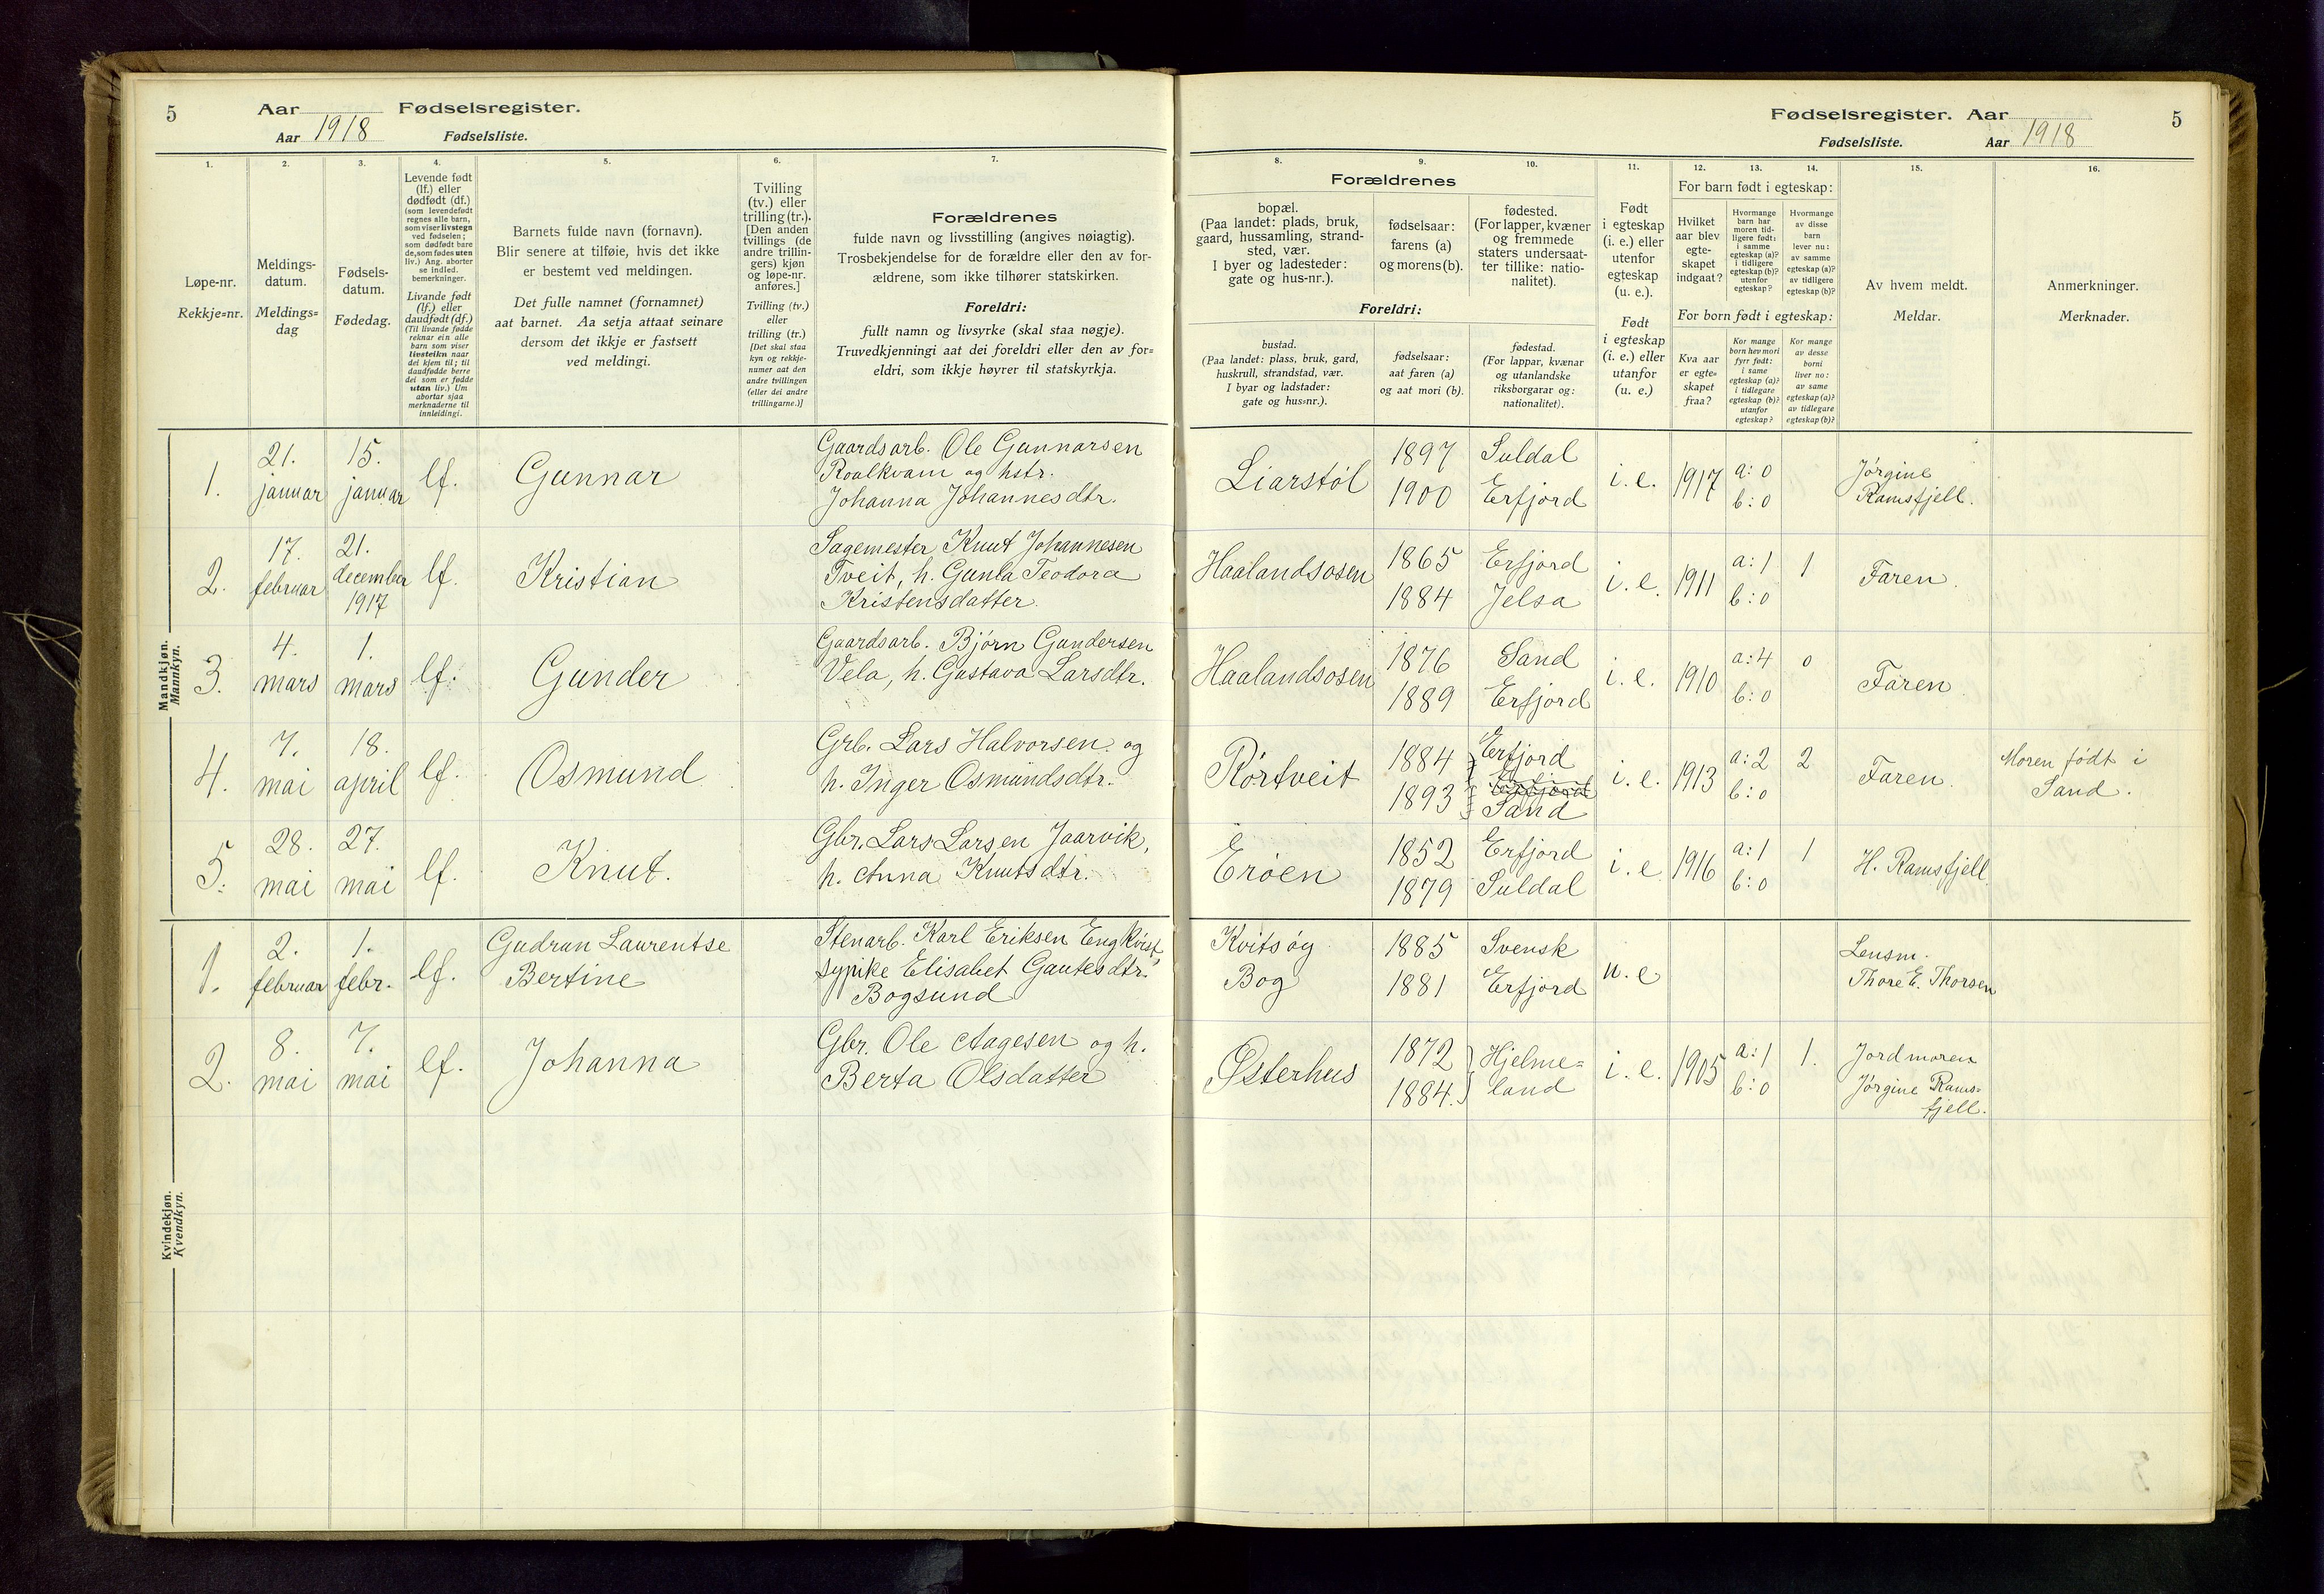 5
Aar Fødselsregister.
Aar 1918 Fødselsliste.
1.
Løpe-nr.
Rekkje=nr.
2.
Meldings-
datum.
Meldings=
dag
3.
Fødsels-
datum.
Fødedag.
4.
Levende født
(lf.) eller
dødfødt (df.)
(som levendefødt
regnes alle barn,
som viser livstegn
ved fødselen;
som dødfødt bare
de, som fødes uten
liv.) Ang. aborter
se indled.
bemerkninger.
Livande født
(lf.) eller
daudfødt (df.)
(Til livande fødde
reknar ein alle
barn som viser
livsteikn naar
dei kjem til; til
daudfødde berre
dei som er fødde
utan liv.) Um
abortar sjaa
merknaderne til
innleidingi.
5.
Barnets fulde navn (fornavn).
Blir senere at tilføie, hvis det ikke
er bestemt ved meldingen.
Det fulle namnet (fornamnet)
aat barnet. Aa setja attaat seinare
dersom det ikkje er fastsett
ved meldingi.
6.
Tvilling
(tv.) eller
trilling (tr.).
[Den anden
tvillings (de
andre trillin-
gers) kjøn
og løpe-nr.
anføres.]
Tvilling (tv.)
eller
trilling (tr.)
[Det skal staa
kyn og rekkje-
numer aat den
andre tvillingen
(eller dei andre
trillingarne.)]
7.
Forældrenes
fulde navn og livsstilling (angives nøiagtig).
Trosbekjendelse for de forældre eller den av for-
ældrene, som ikke tilhører statskirken.
Foreldri:
fullt namn og livsyrke (skal staa nøgje).
Truvedkjenningi aat dei foreldri eller den av for=
eldri, som ikkje høyrer til statskyrkja.
Mandkjøn.
Mannkyn.
1.
21.
januar
15.
januar
lf.
Gunnar
Gaardsarb. Ole Gunnarsen
Roalkvam og hstr.
Johanna Johannesdtr.
2.
17.
februar
21.
december
1917
lf.
Kristian
Sagemester Knut Johannesen
Tveit, h. Gunla Teodora
Kristensdatter.
3.
4.
mars
1.
mars
lf.
Gunder
Gaardsarb. Bjørn Gundersen
Vela, h. Gustava Larsdtr.
4.
7.
mai
18.
april
lf.
Osmund
Grb. Lars Halvorsen og
h. Inger Osmundsdtr.
5.
28.
mai
27.
mai
lf.
Knut.
Gbr. Lars Larsen Jaarvik,
h. Anna Knutsdtr.
Kvindekjøn.
Kvendkyn.
1.
2.
februar
1.
febr.
lf.
Gudrun Laurentse
Bertine
Stenarb. Karl Eriksen Engkvist,
sypike Elisabet Gautesdtr.
Bogsund
2.
8.
mai
7.
mai
lf.
Johanna
Gbr. Ole Aagesen og h.
Berta Olsdatter
Fødselsregister. Aar
5
Fødselsliste. Aar 1918
8.
9.
10.
Forældrenes
bopæl.
(Paa landet: plads, bruk,
gaard, hussamling, strand-
sted, vær.
I byer og ladesteder:
gate og hus-nr.).
fødselsaar:
farens (a)
og morens (b).
fødested.
(For lapper, kvæner
og fremmede
staters undersaat-
ter tillike: natio-
nalitet).
Foreldri:
bustad.
(Paa landet: plass, bruk, gard,
huskrull, strandstad, vær.
I byar og ladstader:
gate og hus=nr.).
fødselsaar:
aat faren (a)
og aat mori (b).
fødestad.
(For lappar, kvænar
og utanlandske
riksborgarar og:
nationalitet).
11.
Født
i egteskap
(i. e.) eller
utenfor
egteskap
(u. e.).
Født
i egteskap
(i. e.) eller
utanfor
(u. e.)
12.
13.
14.
For barn født i egteskap:
Hvilket
aar blev
egte-
skapet
indgaat?
Hvormange
barn har
moren tid-
ligere født:
i samme
egteskap (a)?
i tidligere
egteskap (b)?
utenfor
egteskap?
Hvormange
av disse
barn
lever nu:
av samme
egteskap (a)?
av tidligere
egteskap (b)?
For born født i egteskap:
Kva aar
er egte=
skapet
fraa?
Kor mange
born hev mori
fyrr født:
i same
egteskap (a)?
i tidlegare
egteskap (b)?
utanfor
egteskap?
Kor mange
av desse
borni
liver no:
av same
egteskap (a)?
av tidlegare
egteskap (b)?
15.
Av hvem meldt.
Meldar.
16.
Anmerkninger.
Merknader.
Liarstøl
1897
1900
Suldal
Erfjord
i. e.
1917
a: 0
b: 0
Jørgine
Ramsfjell.
Haalandsosen
1865
1884
Erfjord
Jelsa
i. e.
1911
a: 1
b: 0
1
Faren.
Haalandsosen
1876
1889
Sand
Erfjord
i. e.
1910
a: 4
b: 0
0
Faren
Rørtveit
1884
1893
Erfjord
Erfjord
Sand
i. e.
1913
a: 2
b: 0
2
Faren.
Moren født i
Sand.
Erøen
1852
1879
Erfjord
Suldal
i. e.
1916
a: 1
b: 0
1
H. Ramsfjell
Kvitsøy
Bog
1885
1881
Svensk
Erfjord
u. e
Lensm.
Thore E. Thorsen
Østerhus
1872
1884.
Hjelme=
land
i. e.
1905
a: 1
b: 0
1.
Jordmoren
Jørgine Rams=
fjell.